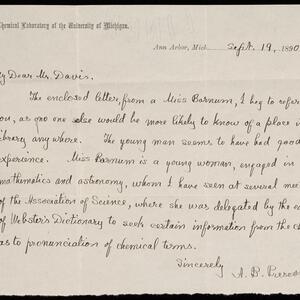 Chemical Laboratory of the University of Michigan.
Ann Arbor, Mich. Sept. 19, 1890
y Dear Mr. Davis.
The enclosed letter, from a Miss Barnum, I beg to refer
ou, as no one else would be more likely to know of a place in
ibrary anywhere. The young man seems to have had good
xperience. Miss Barnum is a young woman, engaged in
mathematics and astronomy, whom I have seen at several mee
of the Association of Science, where she was delegated by the ed
of Webster's Dictionary to seek certain information from the ch
as to pronunciation of chemical terms.
Sincerely
A. B. Presco